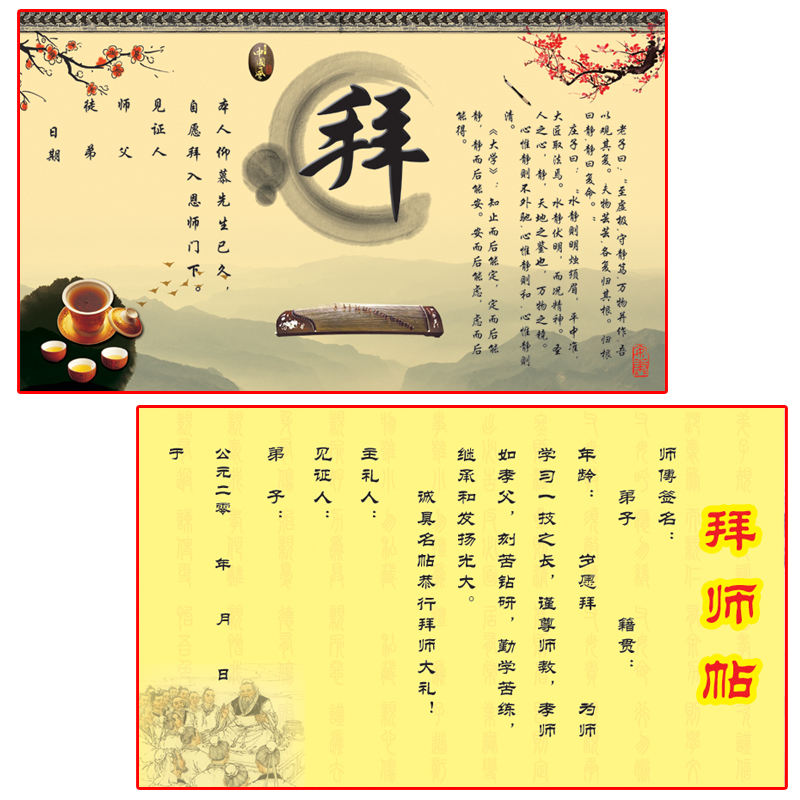 老子曰："至虚极，守静笃，万物并作，吾
以观其复。夫物芸芸，各复归其根。归根
曰静，静曰复命。"
庄子曰："水静則明烛须眉，平中准，
大匠取法焉。水静伏明，而况精神。圣
人之心，静，天地之鉴也，万物之镜。
心惟静則不外驰，心惟静則和，心惟静則
清。
《大学》：知止而后能定，定而后能
静，静而后能安。安而后能虑，虑而后
能得。
拜
中国风
本人仰慕先生已久，
自愿拜入恩师门下。
见证人
师父
徒弟
日期
拜师帖
师傅签名：
弟子 籍贯：
年龄： 岁愿拜 为师
学习一技之长，谨尊师教，孝师
如孝父，刻苦钻研，勤学苦练，
继承和发扬光大。
诚具名帖恭行拜师大礼！
主礼人：
见证人：
弟子：
公元二零 年 月 日
于